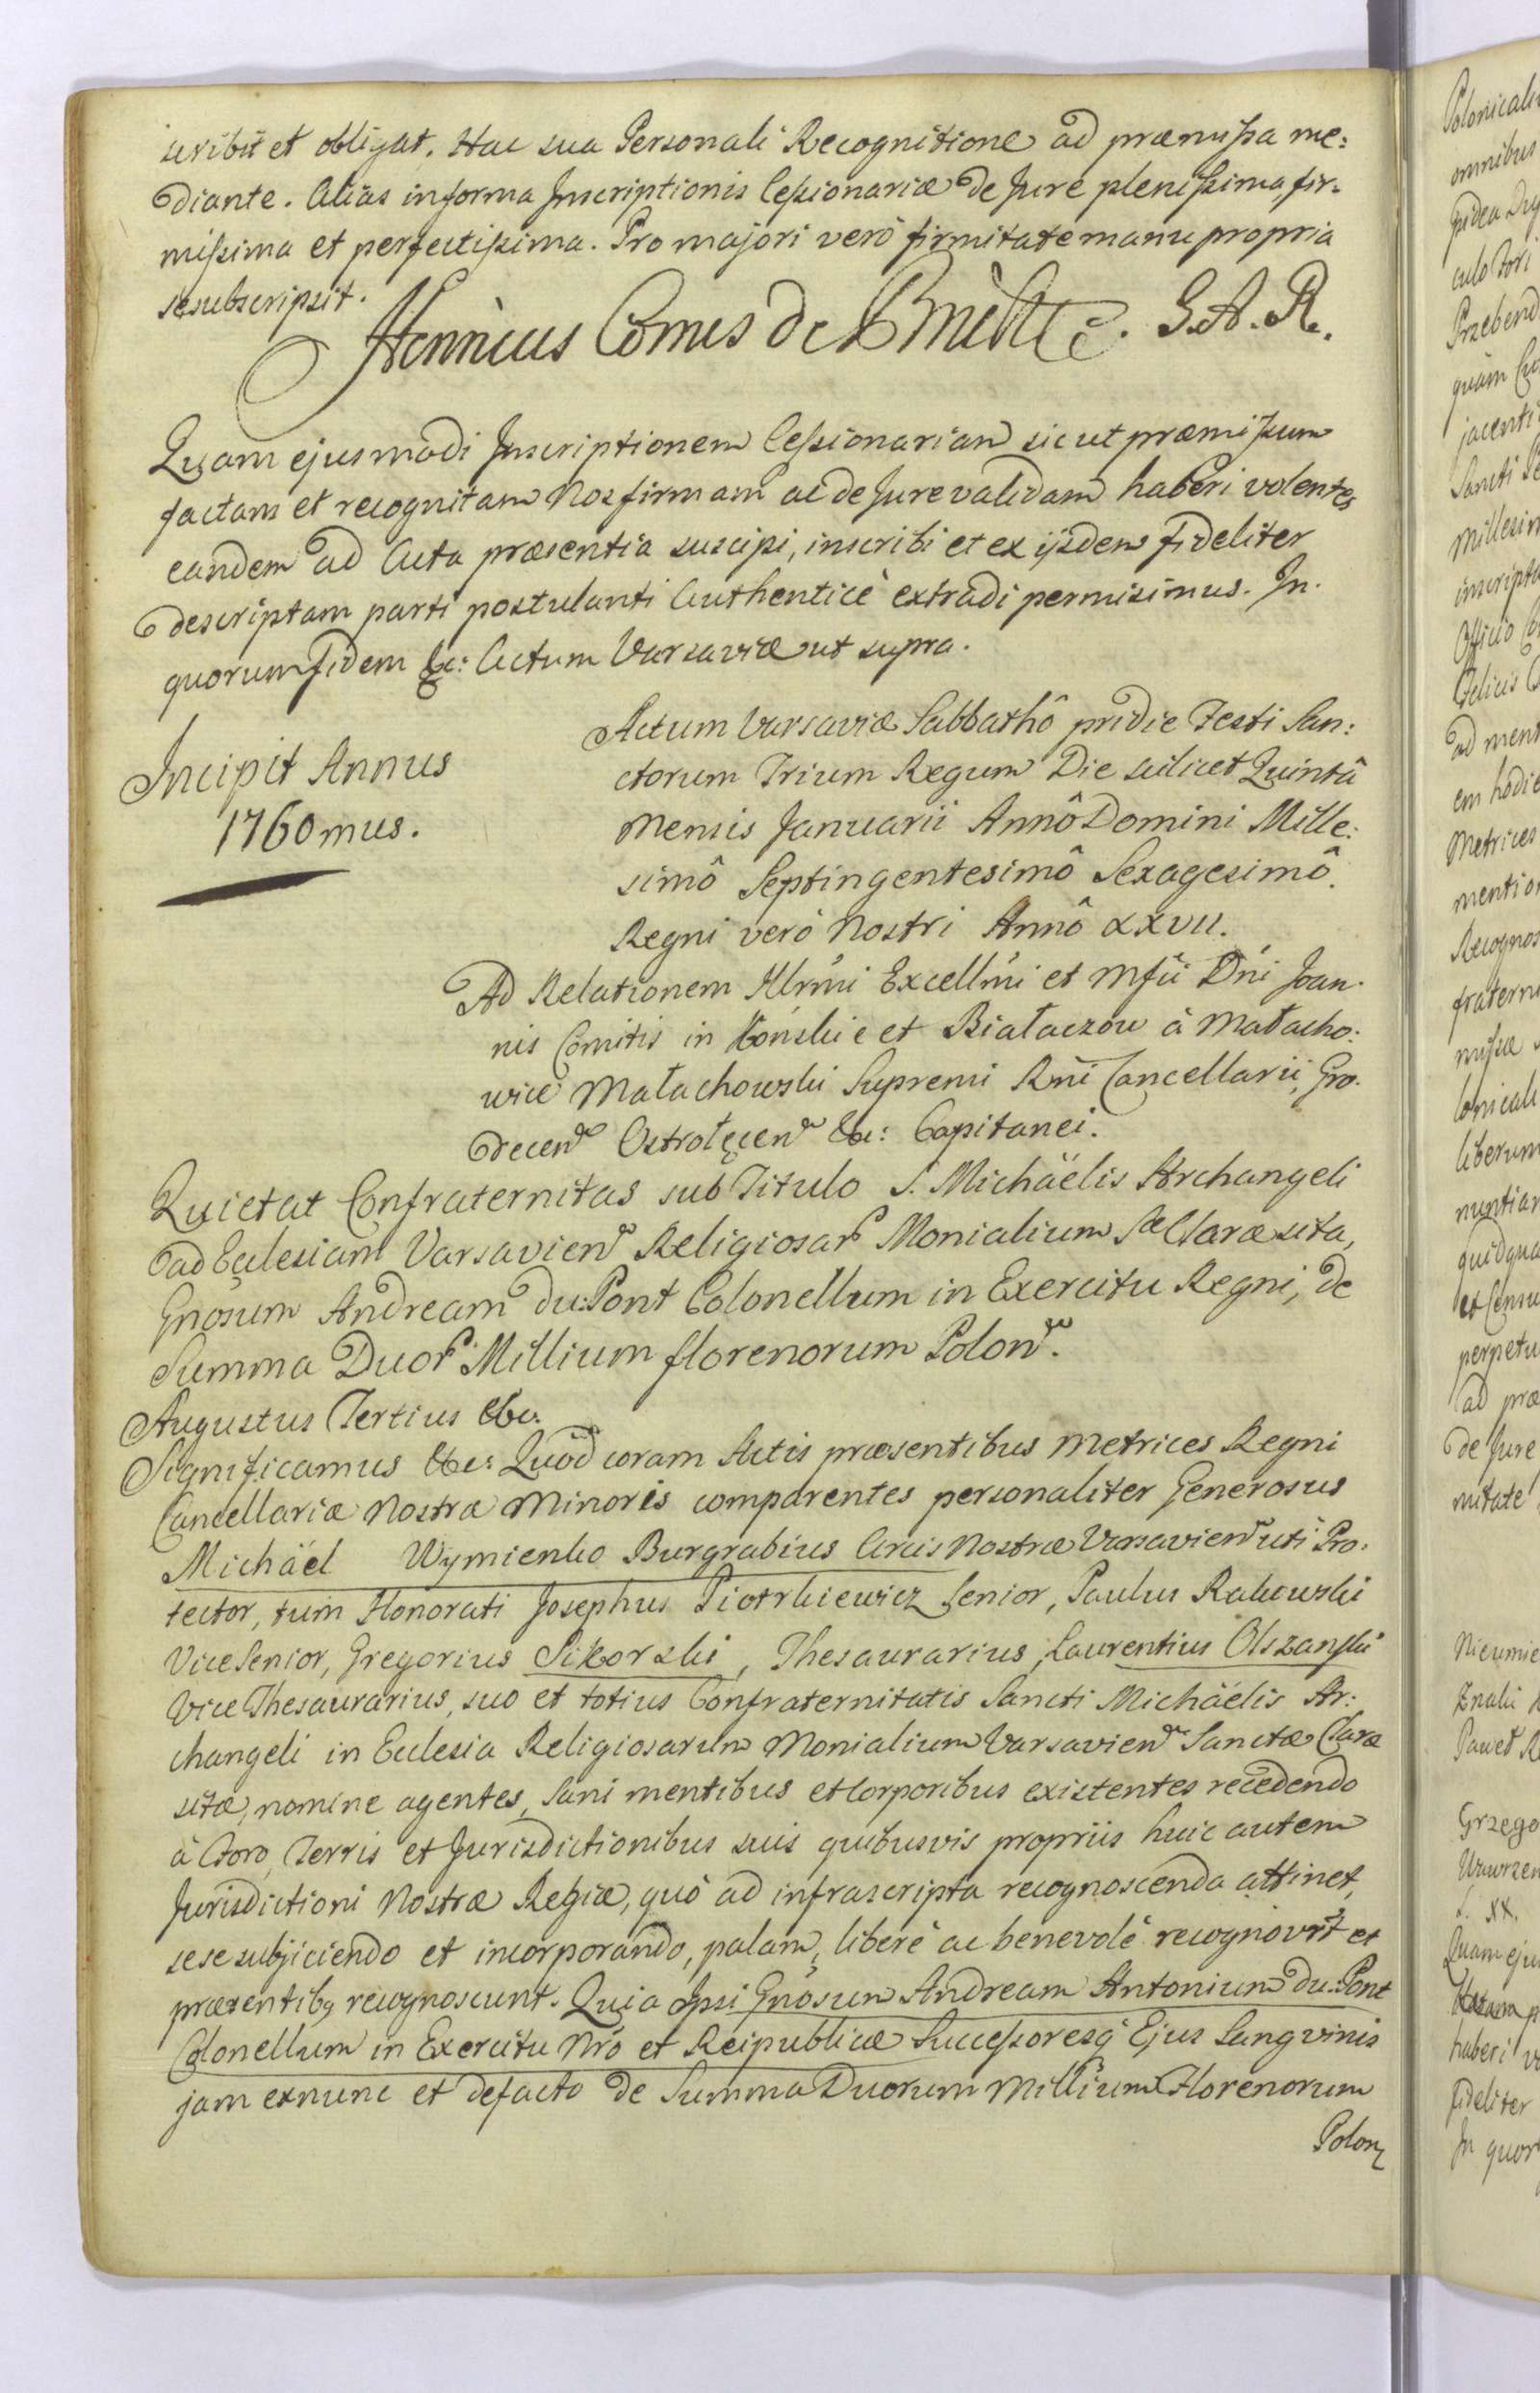 scribit et obligat. Hac sua Personali Recognitione ad præmissa me:
diante. Alias in forma Inscriptionis Cessionariæ de Jure plenissima, fir-
missima et perfectissima. Pro majori verò firmitate manu propria
se subscripsit.
Henricus Comes de Brühl G.A.R.
Quam ejusmodi Inscriptionem Cessionariam sicut præmissum
factam et recognitam Nos firmam ac de Jure validam haberi volentes
eandem ad Acta præsentia suscipi, inscribi et ex ijsdem fideliter
descriptam parti postulanti Authenticè extradi permisimus. In
quorum fidem &c: Actum Varsaviæ ut supra.
Incipit Annus
1760mus.
Actum Varsaviæ Sabbathô pridie Festi San:
ctorum Trium Regum Die scilicet Quintâ
Mensis Januarii Annô Domini Mille:
simô Septingentesimô Sexagesimô.
Regni verò Nostri Annô XXVII.
Ad Relationem Illrmi Excellmi et Mfci Dni Joan-
nis Comitis in Końskie et Białaczow à Małacho:
wice Małachowski Supremi Rni Cancellarii, Gro-
decen Ostrołęcen &c: Capitanei.
Quietat Confraternitas sub Titulo S. Michäelis Archangeli
ad Ecclesiam Varsavien Religiosar Monialium Sæ Claræ sita,
Gnosum Andream du:Pont Colonellum in Exercitu Regni, de
Summa Duor Millium florenorum Polon.
Augustus Tertius &c.
Significamus &c: Quòd coram Actis præsentibus Metrices Regni
Cancellariæ Nostræ Minoris comparentes personaliter Generosus
Michäel Wymienko Burgrabius Arcis Nostræ Varsavien uti Pro-
tector, tum Honorati Josephus Piotrkiewicz Senior, Paulus Rakowski
Vice Senior, Gregorius Sikorski, Thesaurarius, Laurentius Olszanski
Vice Thesaurarius, suo et totius Confraternitatis Sancti Michäelis Ar:
changeli in Ecclesia Religiosarum Monialium Varsavien Sanctæ Claræ
sitæ, nomine agentes, Sani mentibus et Corporibus existentes recedendo
à Foro, Terris et Jurisdictionibus suis quibusvis propriis huic autem
Jurisdictioni Nostræ Regiæ, quò ad infrascripta recognoscenda attinet,
sese subjiciendo et incorporando, palam, liberè ac benevolè recognovrt et
præsentibq recognoscunt. Quia Ipsi Gnosum Andream Antonium du:Pont
Colonellum in Exercitu Nro et Reipublicæ Successoresq Ejus Sangvinis
jam exnunc et defacto de Summa Duorum Millium Florenorum
Polon